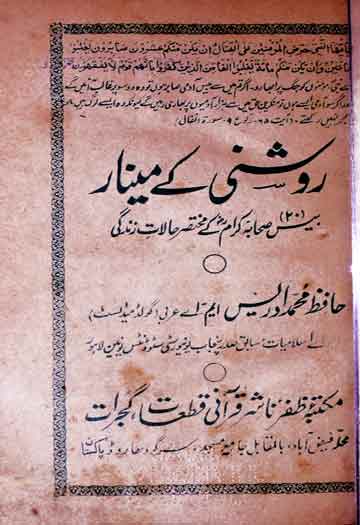 یٰۤاَیُّهَا النَّبِیُّ حَرِّضِ الْمُؤْمِنِیْنَ عَلَی الْقِتَالِ اِنْ یَّكُنْ مِّنْكُمْ عِشْرُوْنَ صَابِرُوْنَ یَغْلِبُوْا
مِائَتَیْنِ وَاِنْ یَّكُنْ مِّنْكُمْ مِّائَةٌ یَّغْلِبُوْۤا اَلْفًا مِّنَ الَّذِیْنَ كَفَرُوْا بِاَنَّهُمْ قَوْمٌ لَّا یَفْقَهُوْنَ
روشنی کے مینار
بیس (۲۰) صحابہ کرامؓ کے مختصر حالات زندگی
حافظ محمد ادریس ایم۔ اے عربی (گولڈ میڈلسٹ)
اسلامیات: سابق صدر پنجاب یونیورسٹی سٹوڈنٹس یونین لاہور
مکتبہ ظفر ناشر قرآنی قطعات، گجرات
محلہ فیض آباد، بالمقابل جامع مسجد، سرگودھا روڈ پاکستان